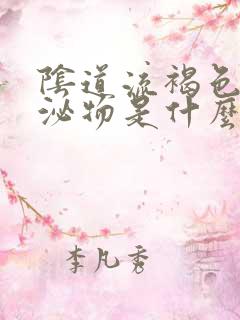 陰道流褐色
泌物是什麼
李凡秀